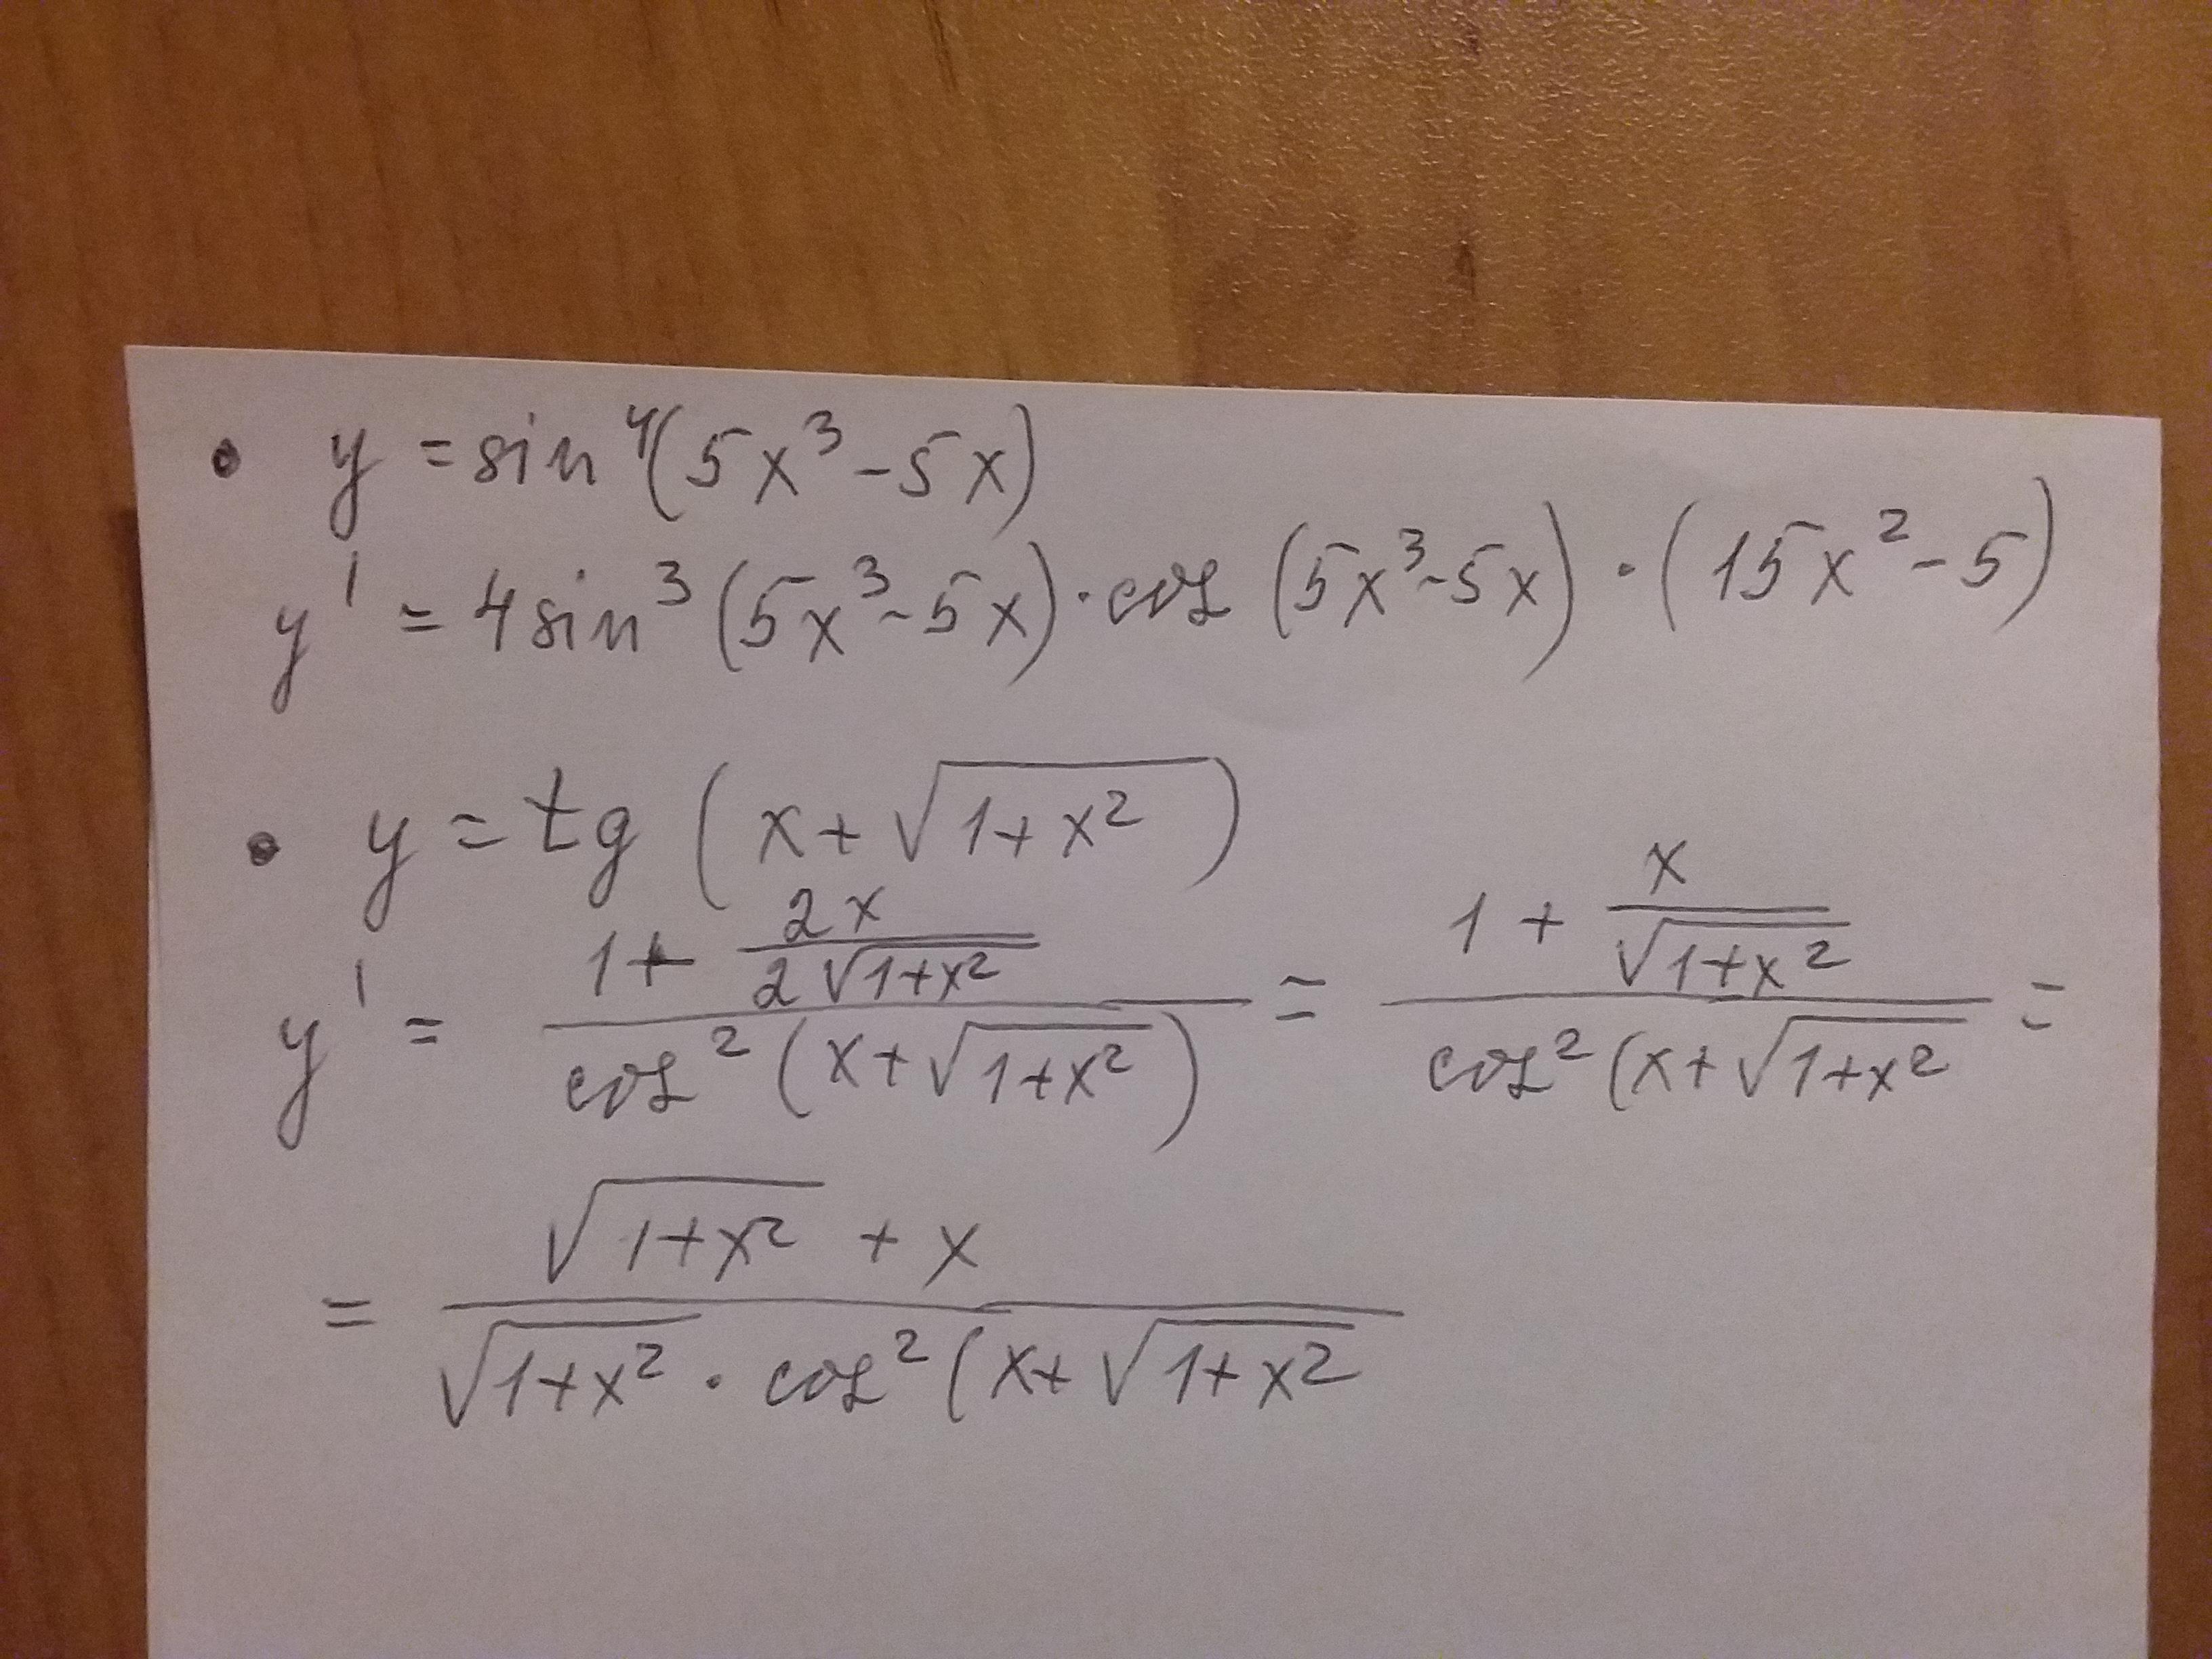 • y = sin⁴(5x³-5x)
y' = 4sin³(5x³-5x)·cos(5x³-5x)·(15x²-5)
• y = tg(x+√(1+x²))
y' = (1+ 2x/(2√(1+x²)))/(cos²(x+√(1+x²))) = (1+ x/√(1+x²))/(cos²(x+√(1+x²)) =
= (√(1+x²) + x)/(√(1+x²) · cos²(x+√(1+x²))